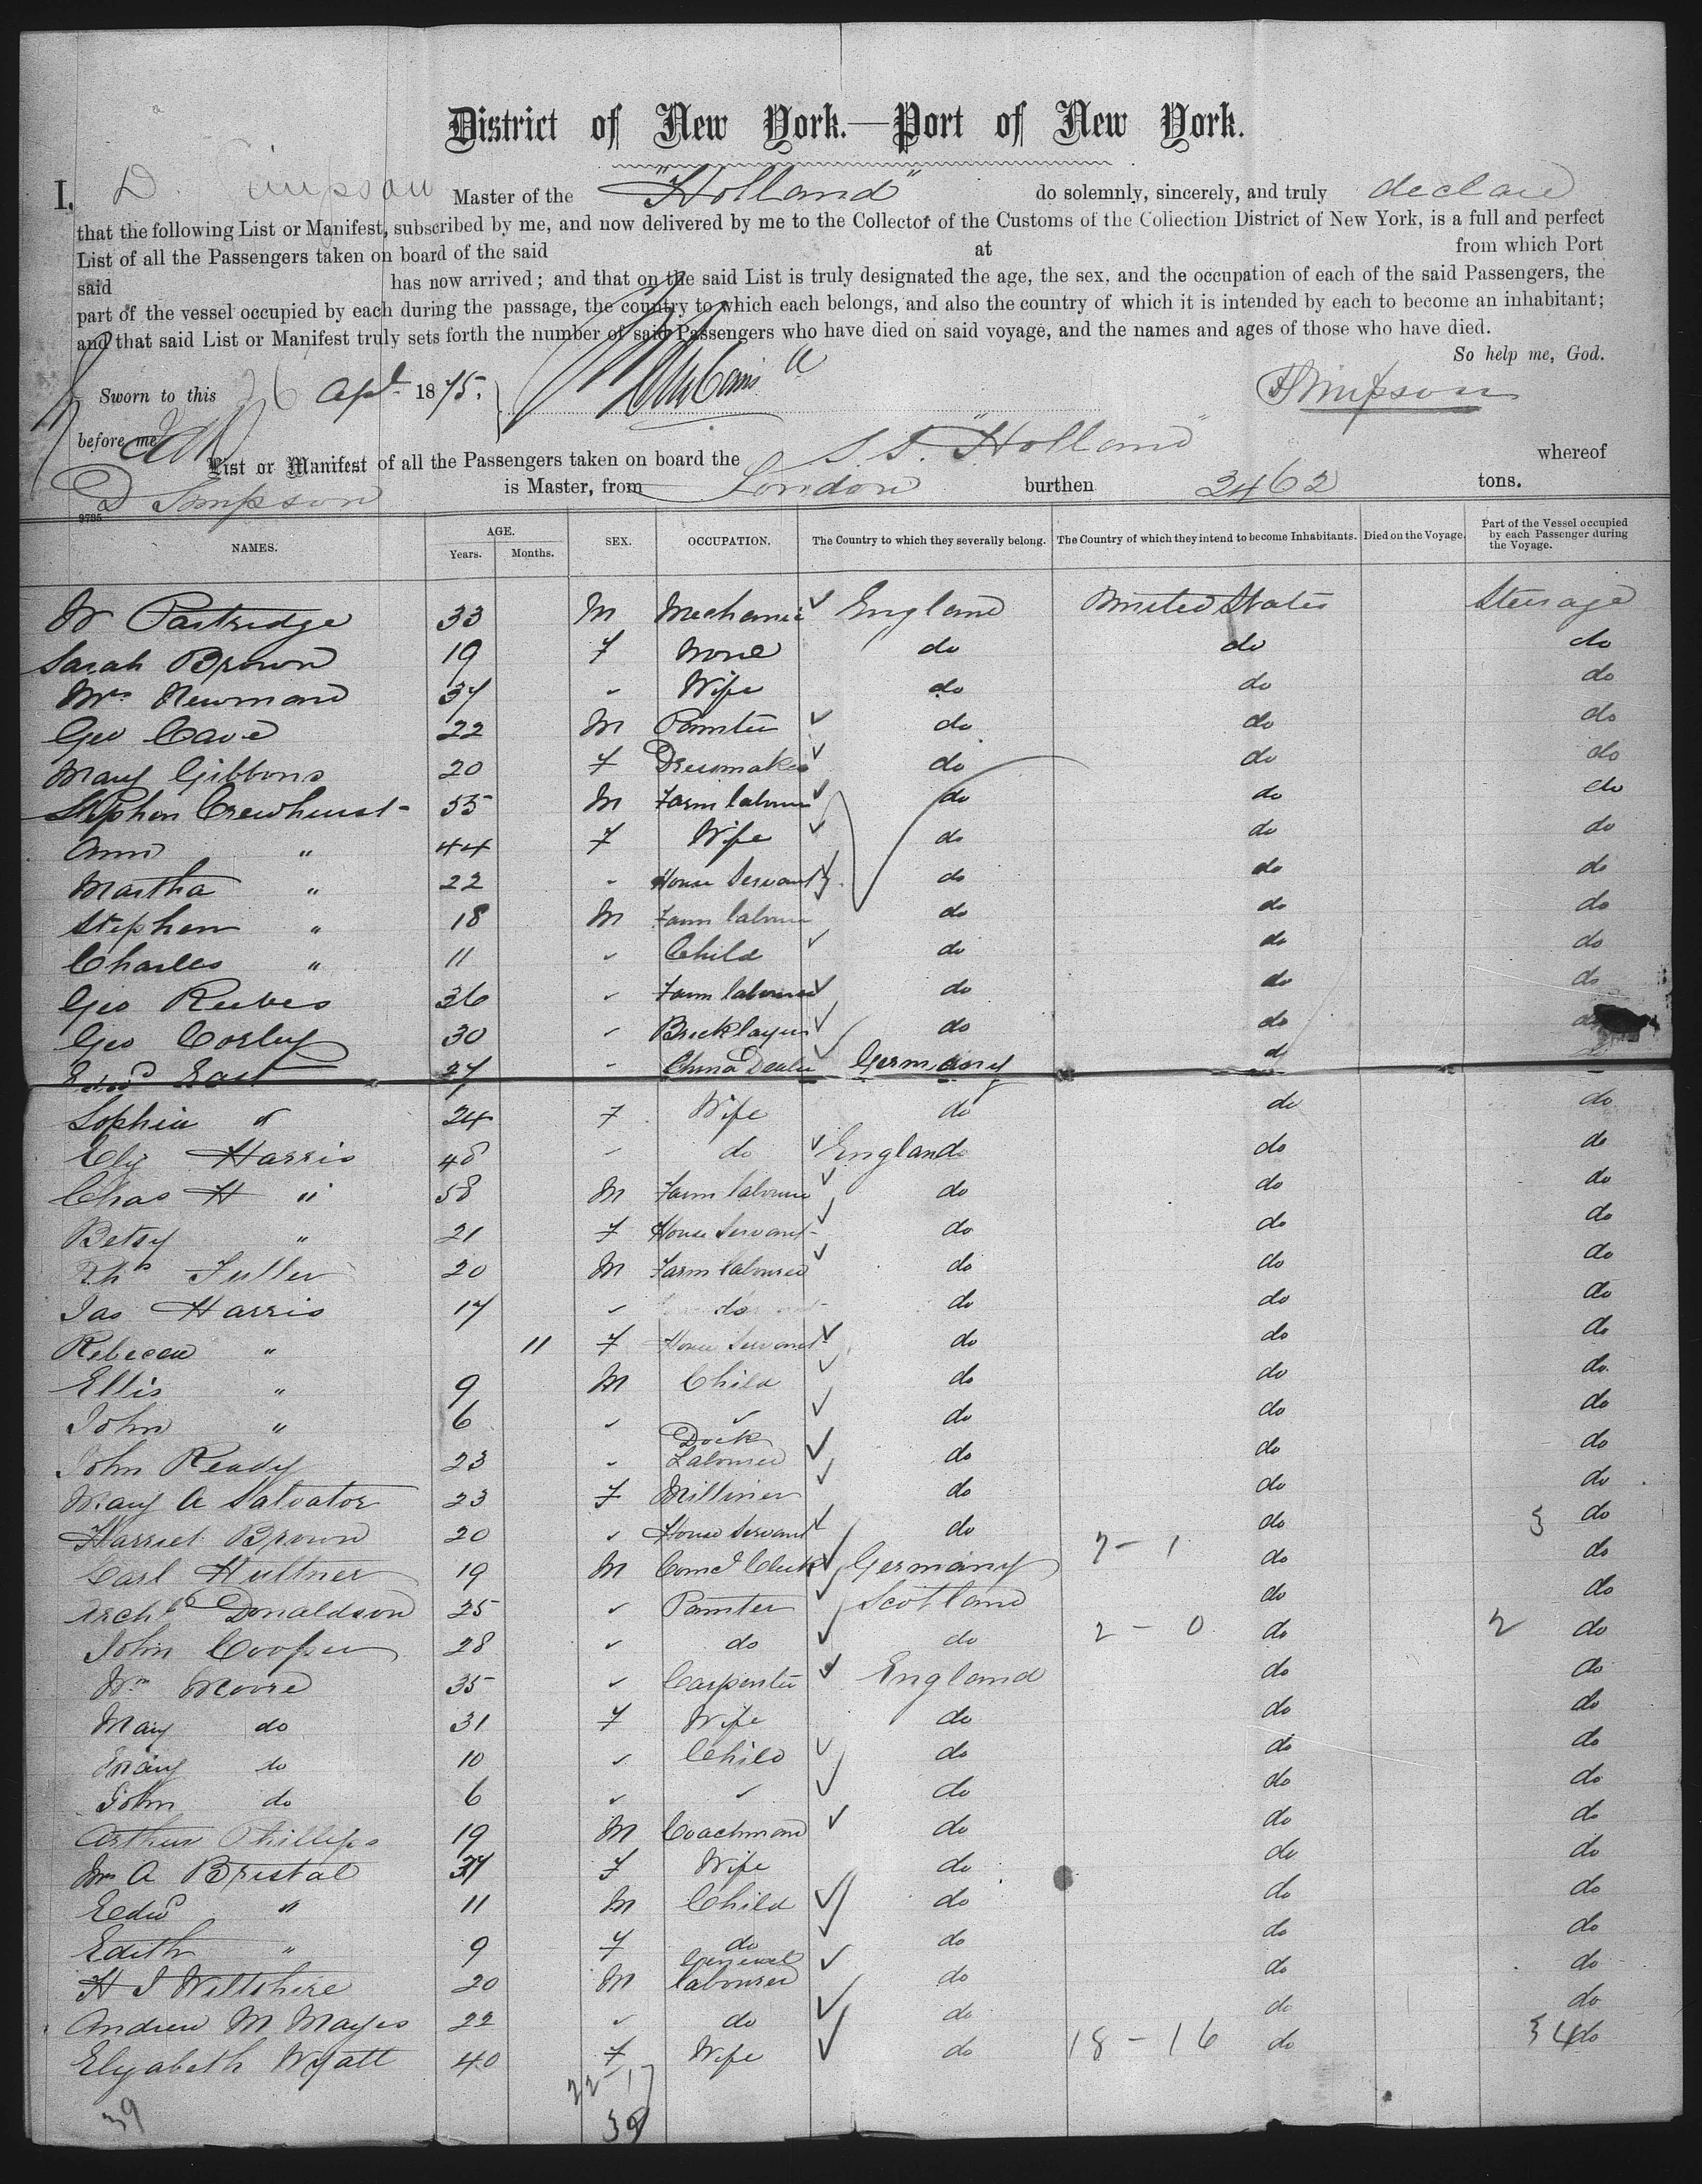 District of New York.—Port of New York.
I, D. Simpson Master of the "Holland" do solemnly, sincerely, and truly declare
that the following List or Manifest, subscribed by me, and now delivered by me to the Collector of the Customs of the Collection District of New York, is a full and perfect
List of all the Passengers taken on board of the said at from which Port
said has now arrived; and that on the said List is truly designated the age, the sex, and the occupation of each of the said Passengers, the
part of the vessel occupied by each during the passage, the country to which each belongs, and also the country of which it is intended by each to become an inhabitant;
and that said List or Manifest truly sets forth the number of said Passengers who have died on said voyage, and the names and ages of those who have died.
So help me, God.
Sworn to this 26 Apl 1875. DSimpson
before me
List or Manifest of all the Passengers taken on board the S.S. "Holland" whereof
D Simpson is Master, from London burthen 3462 tons.
9795
NAMES. AGE. Years. Months. SEX. OCCUPATION. The Country to which they severally belong. The Country of which they intend to become Inhabitants. Died on the Voyage. Part of the Vessel occupied by each Passenger during the Voyage.
W Partridge 33 M Mechanic England United States Steerage
Sarah Brown 19 F None do do do
Mrs Newman 37 " Wife do do do
Geo Cave 22 M Painter do do do
Mary Gibbons 20 F Dressmaker do do do
Stephen Crewhurst 55 M Farm labourer do do do
Ann " 44 F Wife do do do
Martha " 22 " House Servant do do do
Stephen " 18 M Farm labourer do do do
Charles " 11 " Child do do do
Geo Reeves 36 " Farm labourer do do do
Geo Corley 30 " Bricklayer do do do
Edwd East 27 " China Dealer Germany do
Sophia " 24 F Wife do do do
Eliz Harris 48 " do England do do
Chas H " 58 M Farm labourer do do do
Betsy " 21 F House Servant do do do
Ths Fuller 20 M Farm labourer do do do
Jas Harris 17 " do do do do
Rebecca " 11 F House Servant do do do
Ellis " 9 M Child do do do
John " 6 " " do do do
John Ready 23 " Dock Labourer do do do
Mary A Salvator 23 F Milliner do do do
Harriet Brown 20 " House Servant do do 3 do
Carl Hultner 19 M Comcl Clerk Germany 2 - 1 do do
Archd Donaldson 25 " Painter Scotland do do
John Cooper 28 " do do 2 - 0 do 2 do
Wm Moore 35 " Carpenter England do do
Mary do 31 F Wife do do do
Mary do 10 " Child do do do
John do 6 " " do do do
Arthur Phillips 19 M Coachman do do do
Mrs A Bristal 37 F Wife do do do
Edwd " 11 M Child do do do
Edith " 9 F do do do do
H J Wiltshire 20 M General labourer do do do
Andrew M Mayes 22 " do do do do
Elizabeth Wyatt 40 F Wife do 18 - 16 do 34 do
22 - 17
39 39